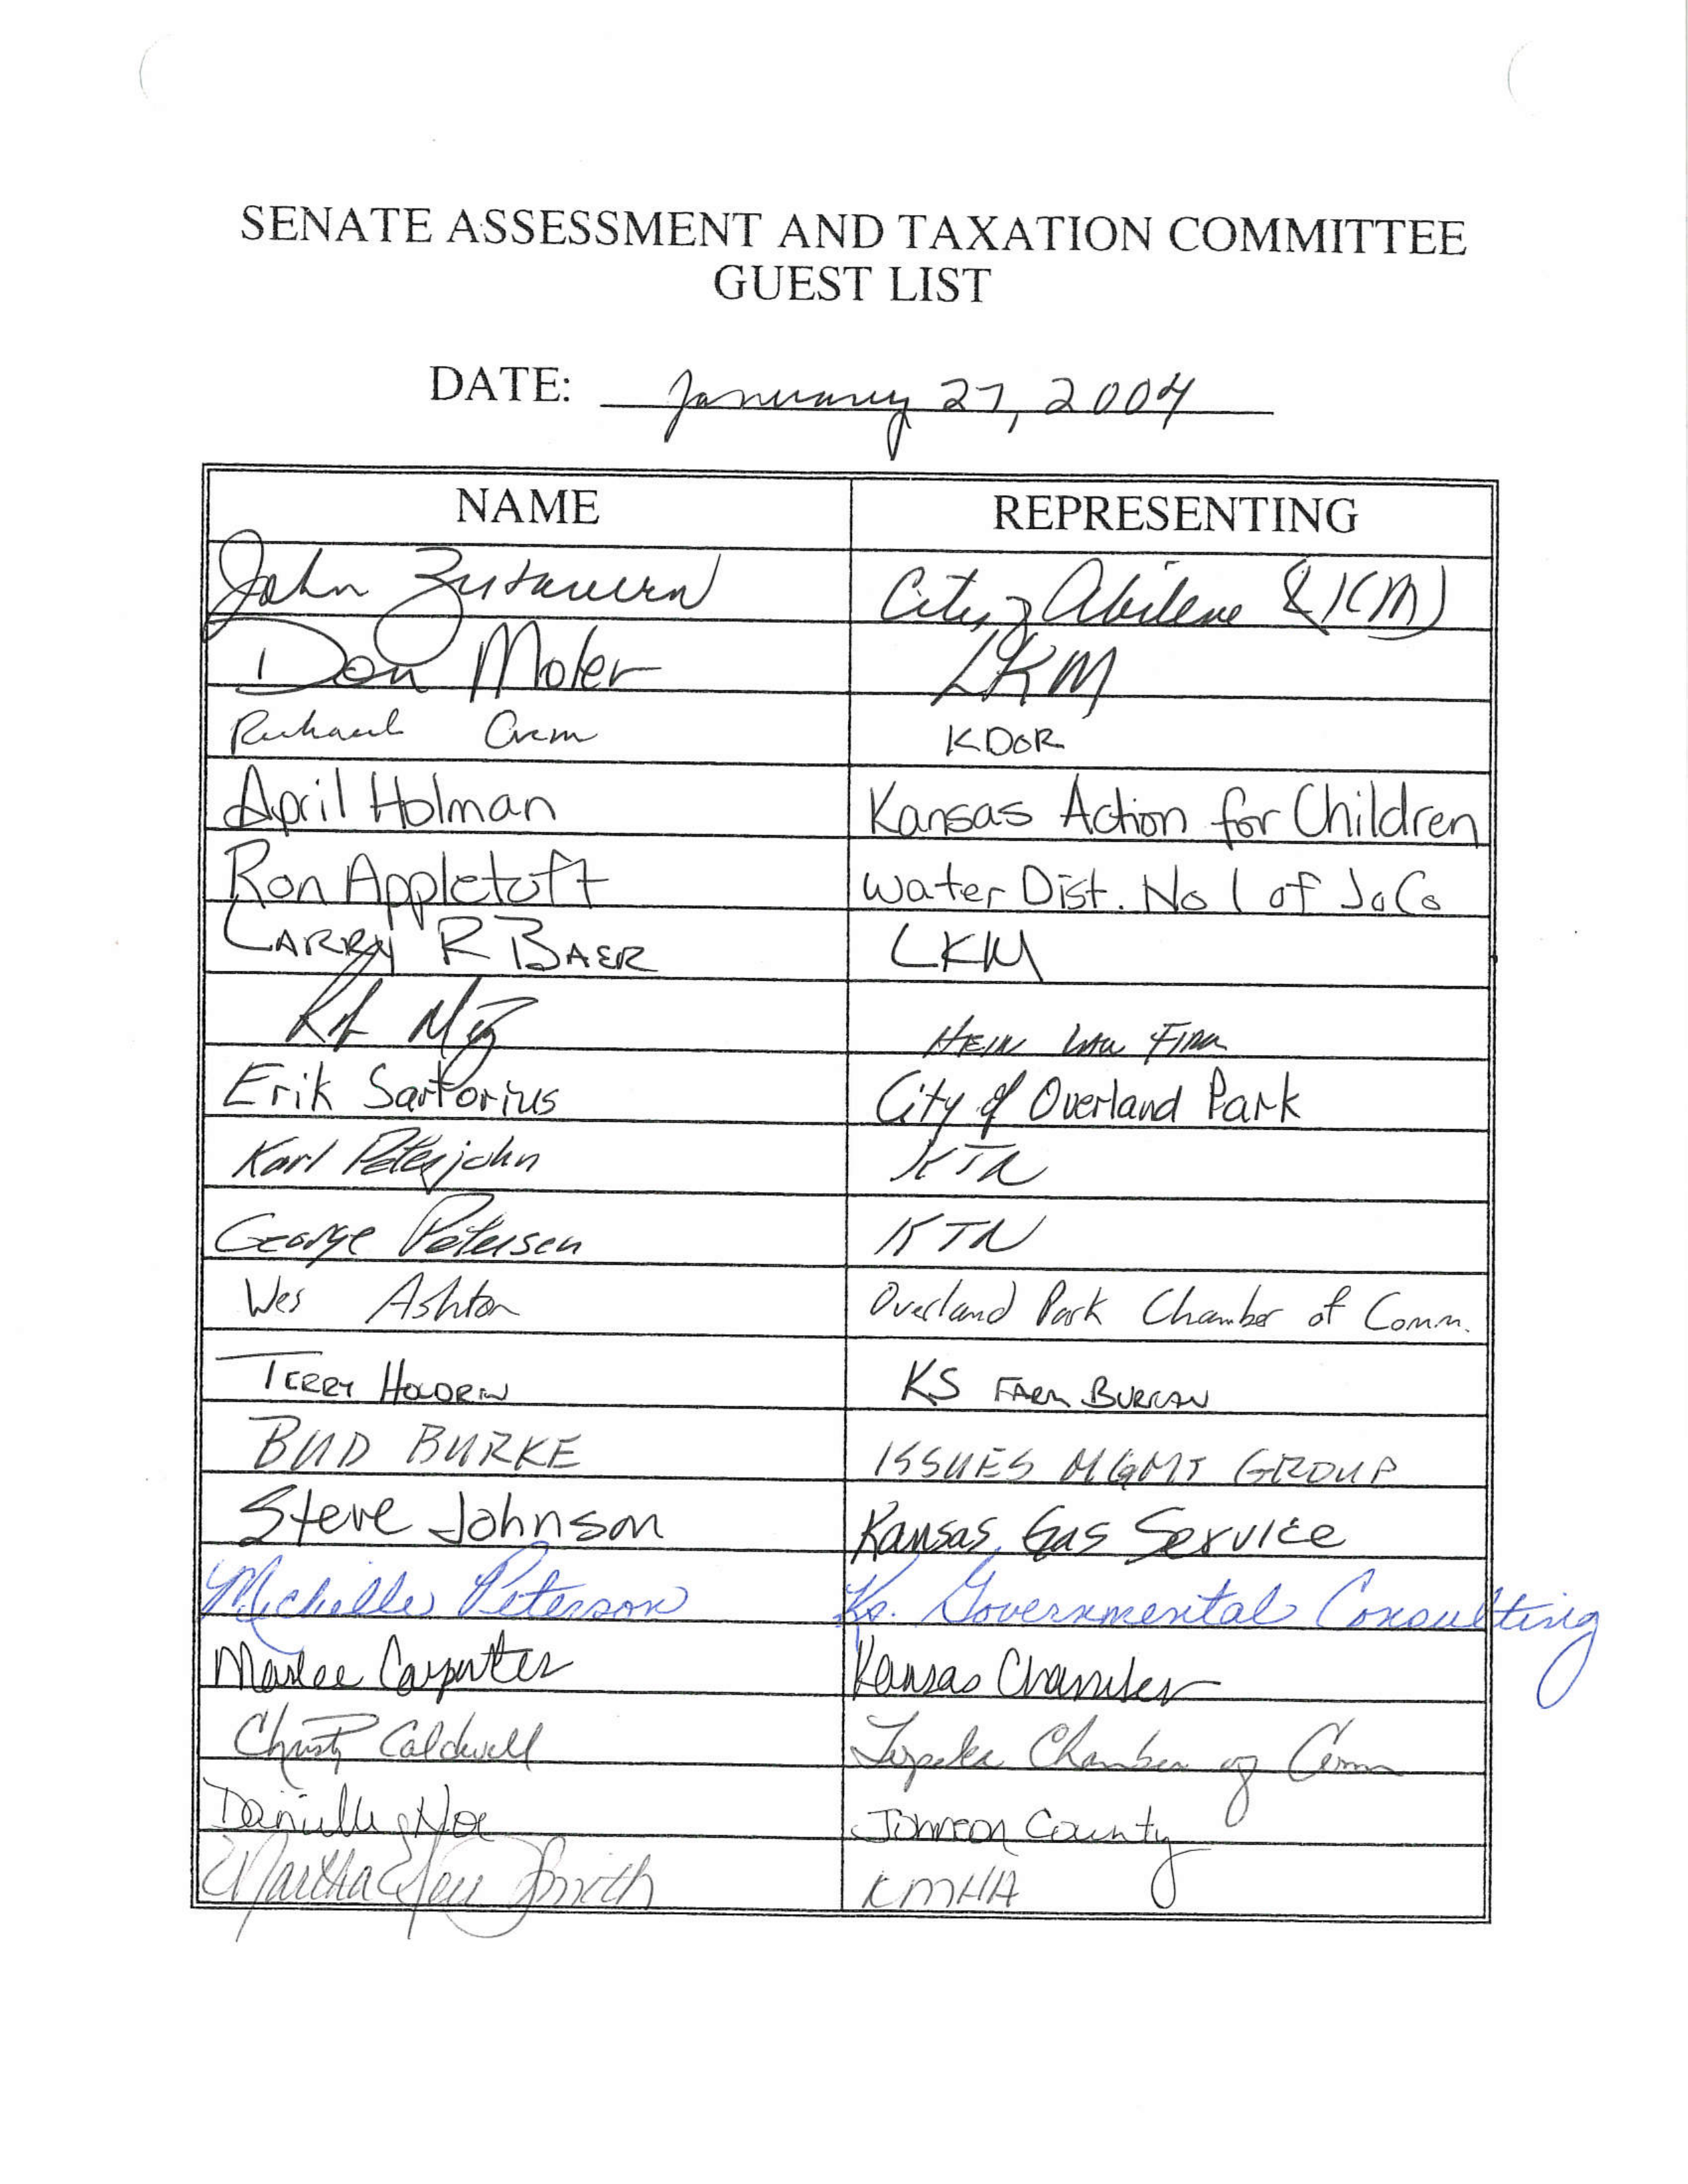 SENATE ASSESSMENT AND TAXATION COMMITTEE
GUEST LIST
DATE: January 27, 2004
NAME REPRESENTING
John City of Abilene
Don Moler LKM
Richard Cram KDOR
April Holman Kansas Action for Children
Ron Appletoft Water Dist. No 1 of JoCo
LARRY R BAER LKM
HEIN LAW FIRM
Erik Sartorius City of Overland Park
Karl Peterjohn KTN
George Petersen KTN
Wes Ashton Overland Park Chamber of Comm.
TERRY HOLDREN KS FARM BUREAU
BUD BURKE ISSUES MGMT GROUP
Steve Johnson Kansas Gas Service
Michelle Peterson Ks. Governmental Consulting
Marlee Carpenter Kansas Chamber
Christy Caldwell Topeka Chamber of Comm
Danielle Noe Johnson County
Martha Smith KMHA